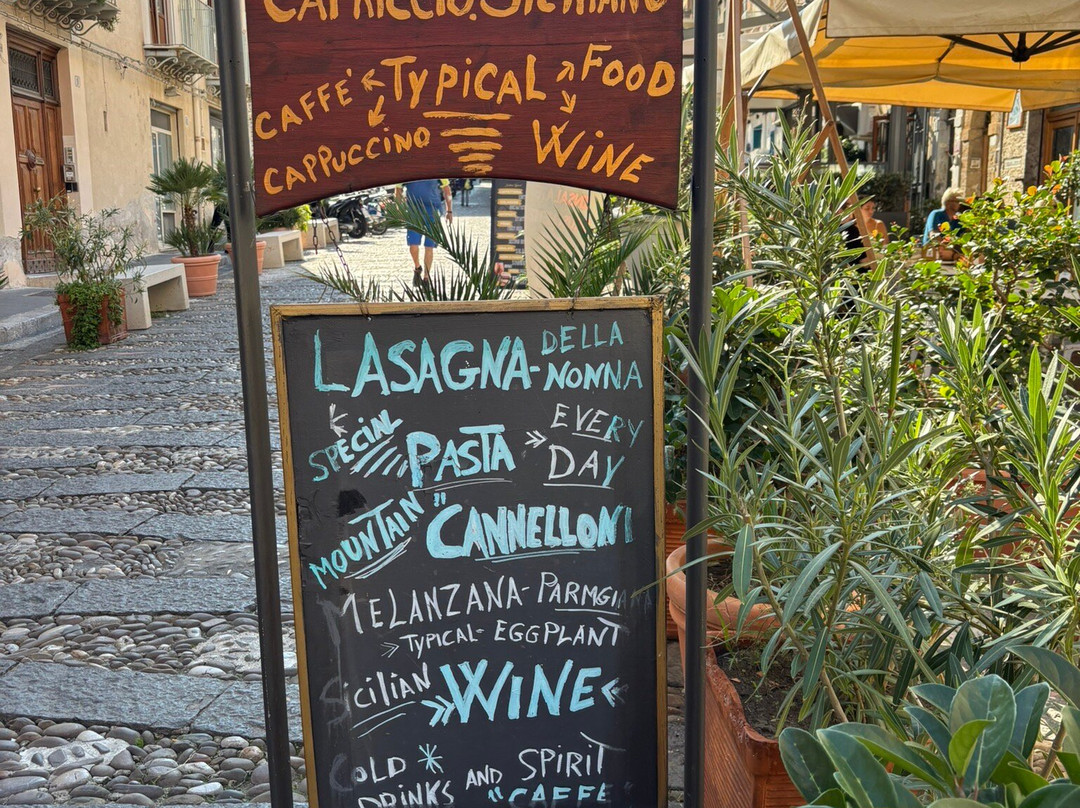 CAPRICCIO.SICILIANO
CAFFÈ TYPICAL FOOD
CAPPUCCINO WINE
LASAGNA-DELLA
NONNA
SPECIAL PASTA EVERY
DAY
MOUNTAIN "CANNELLONI
MELANZANA-PARMGIANA
TYPICAL-EGGPLANT
SICILIAN WINE
COLD DRINKS AND SPIRIT
"CAFFE